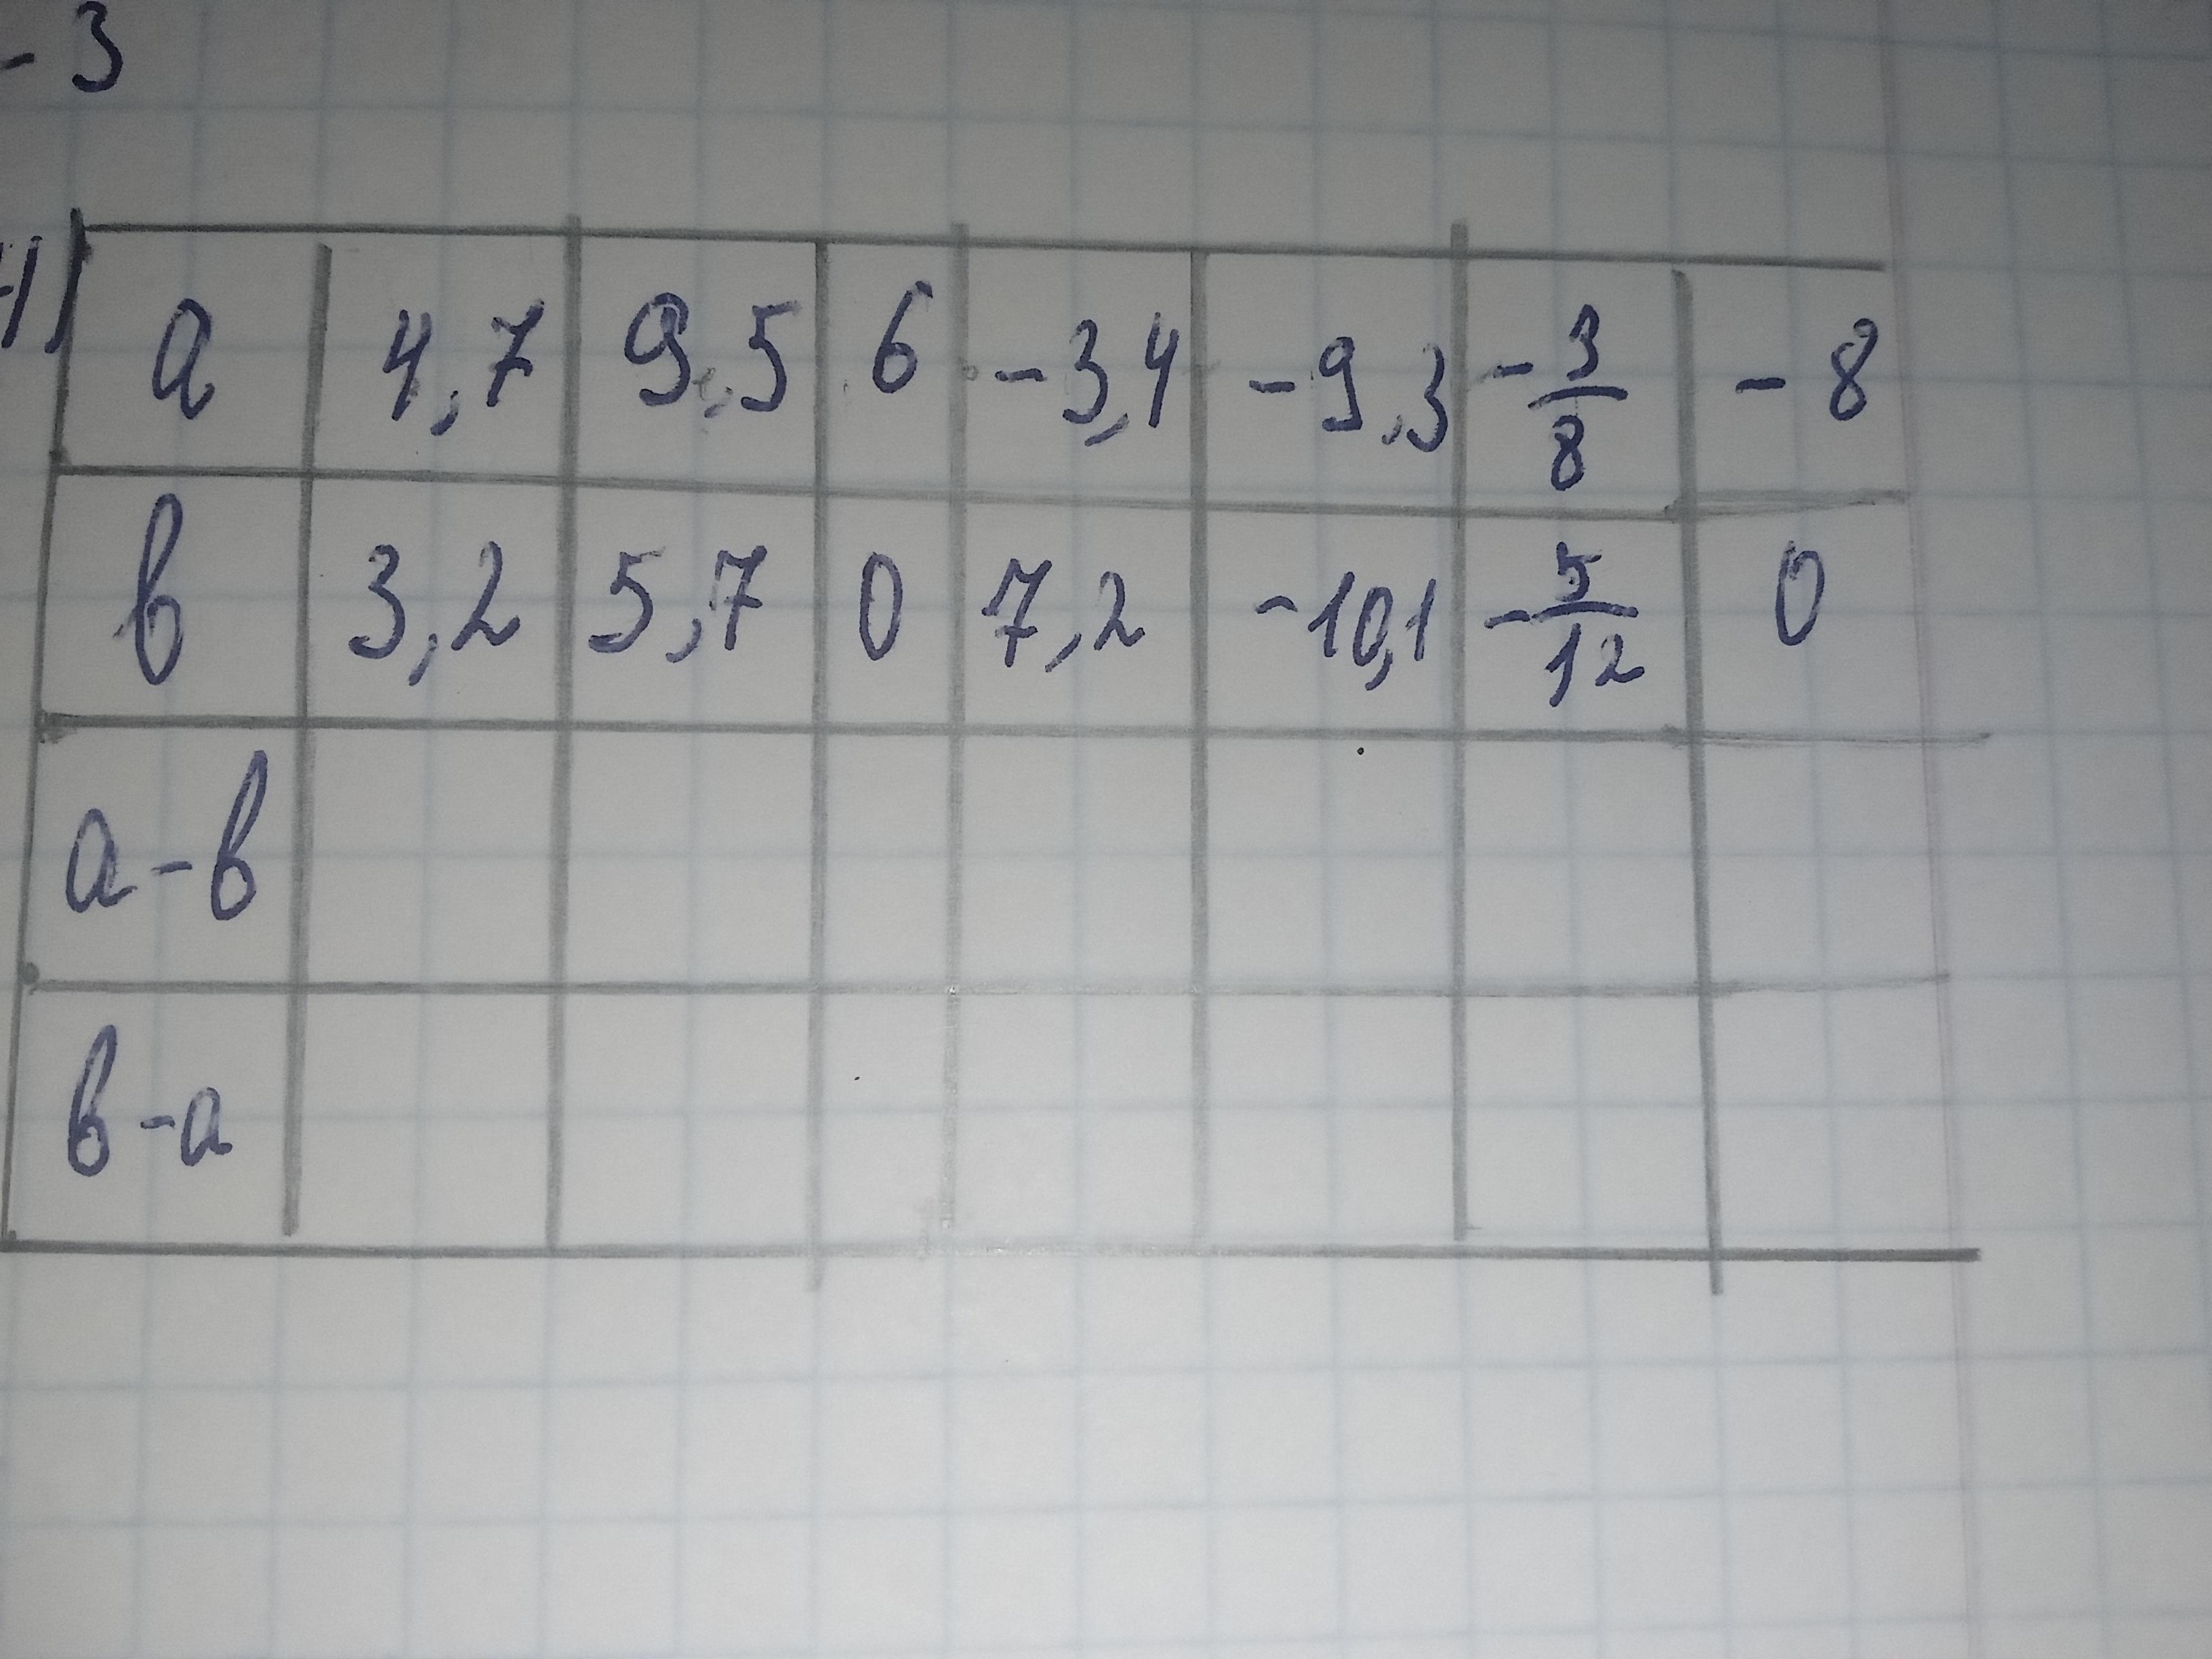 - 3
a 4,7 9,5 6 -3,4 -9,3 -3/8 -8
в 3,2 5,7 0 7,2 -10,1 -5/12 0
a-в
в-a